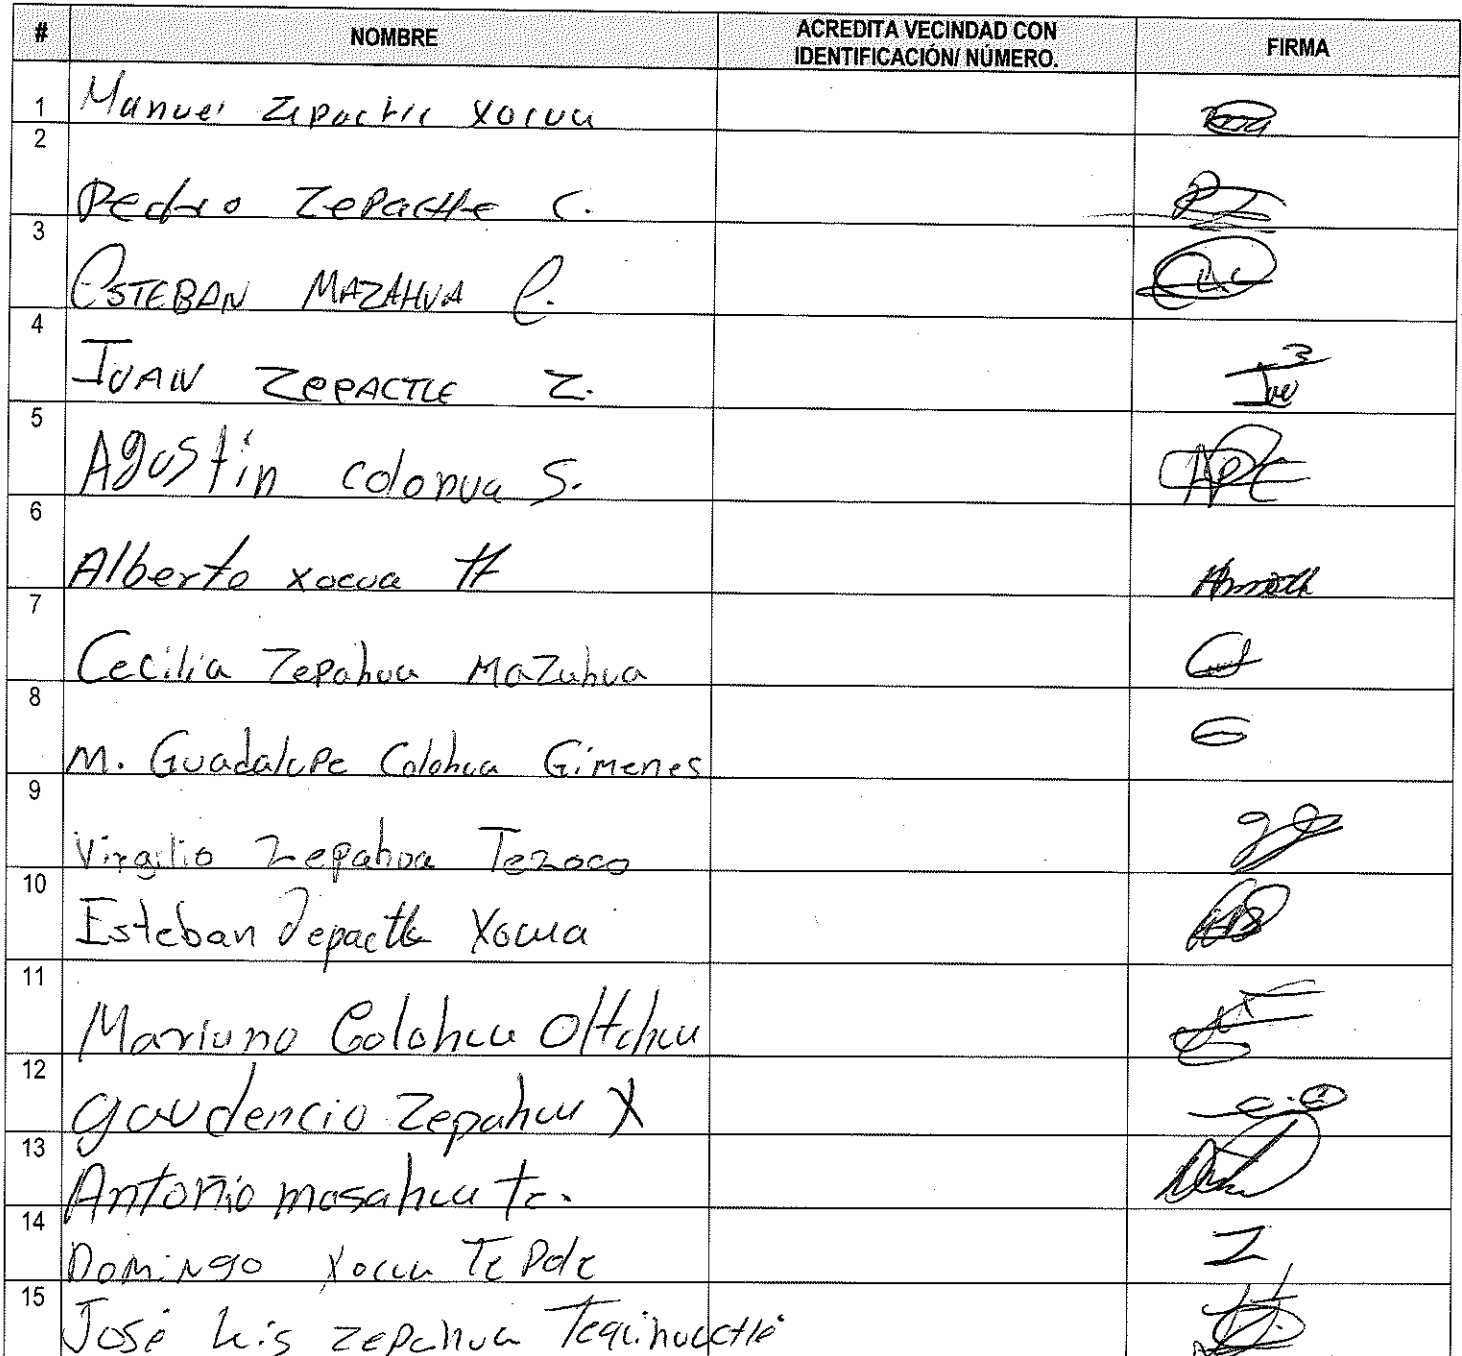 # NOMBRE ACREDITA VECINDAD CON IDENTIFICACIÓN/ NÚMERO. FIRMA
1 Manuel Zepactle Xocua
2 Pedro Zepactle C.
3 ESTEBAN MAZAHUA C.
4 JUAN ZEPACTLE Z.
5 Agustin colohua S.
6 Alberto xocua H
7 Cecilia Zepahua Mazahua
8 M. Guadalupe Colohua Gimenes
9 Virgilio Zepahua Tezoco
10 Esteban Zepactle Xocua
11 Mariano Colohua
12 gaudencio Zepahua X
13 Antonio masahua te.
14 Domingo Xocua Te Pole
15 José Luis zepahua